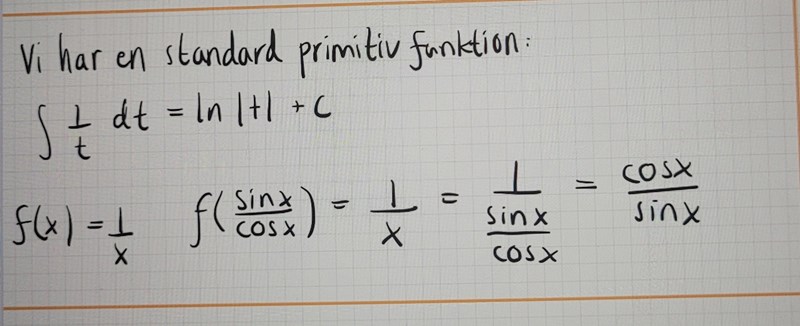 Vi har en standard primitiv funktion:
∫ 1/t dt = ln |t| + C
f(x) = 1/x f(sinx/cosx) = 1/x = 1/(sinx/cosx) = cosx/sinx